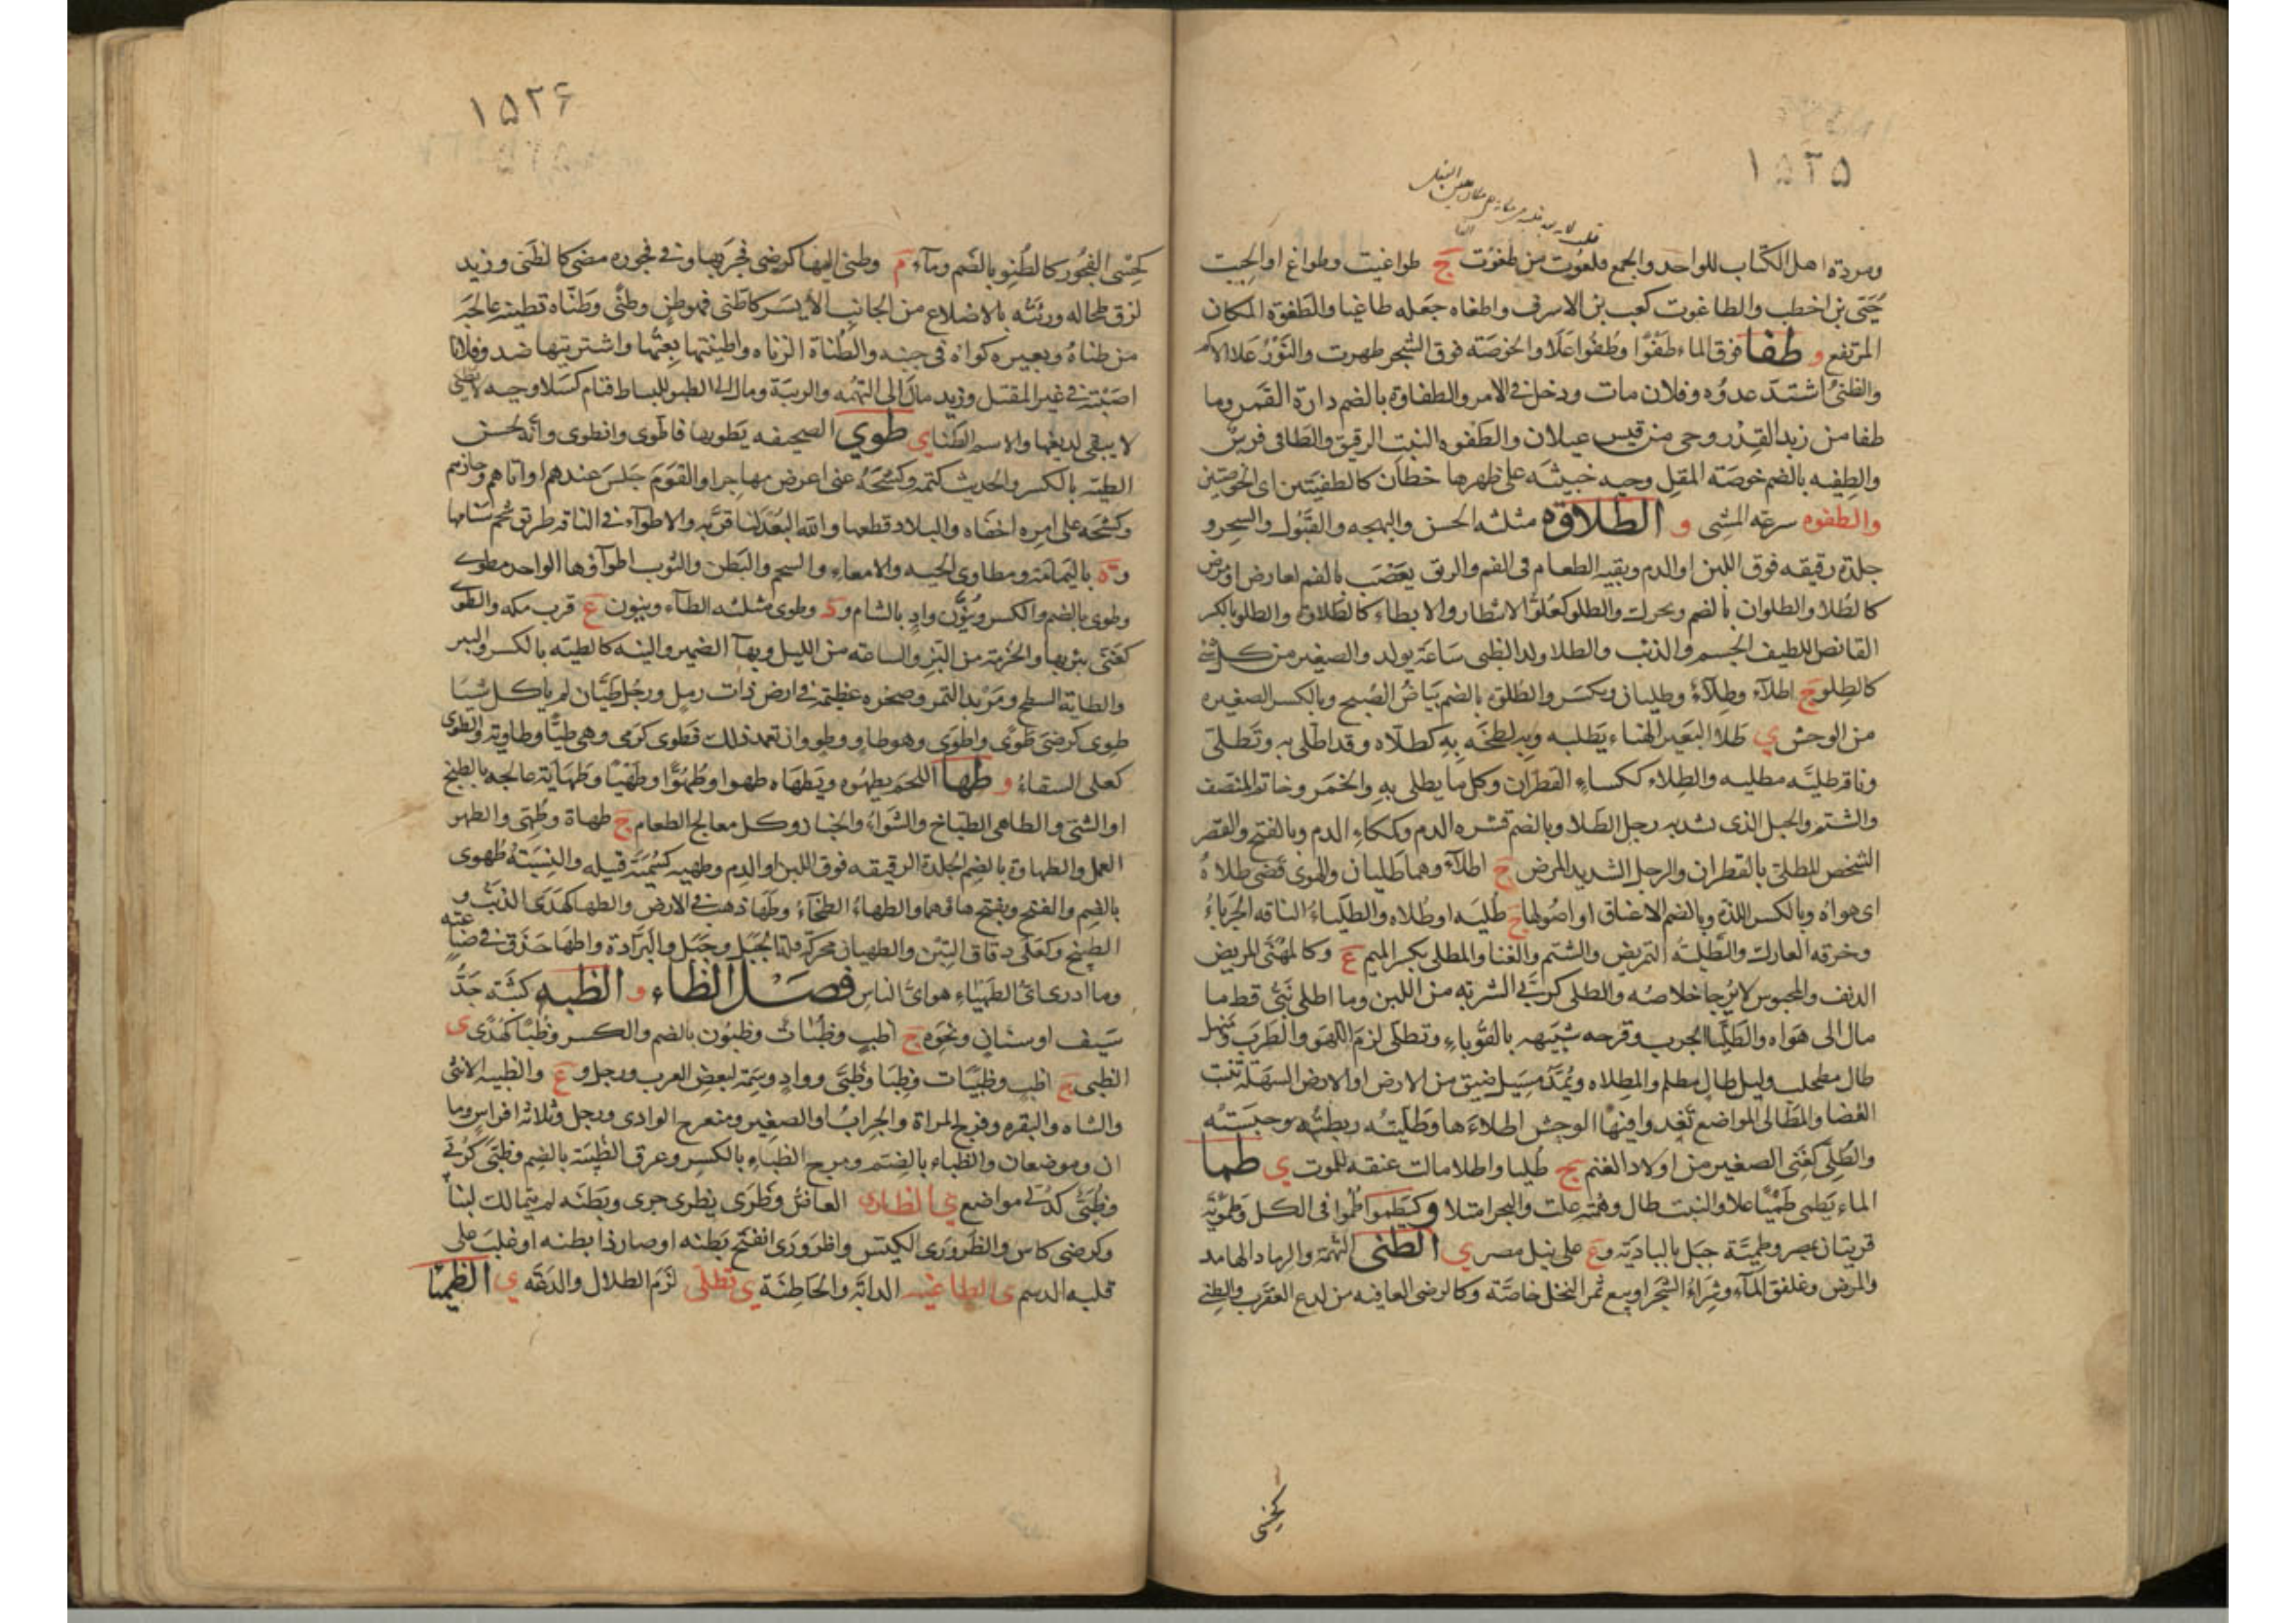 ١٥٢٥
ومردة اهل الكتاب للواحد والجمع فلعوت من طغوت ج طواغيت وطواغ او الجبت
حيى بن اخطب والطاغوت كعب بن الاشرف واطغاه جعله طاغيا والطغوة المكان
المرتفع و طفا فوق الماء طفوا وطفوا علا والخوصة فوق الشجر ظهرت والثور علا الاكم
والظبى اشتد عدوه وفلان مات ودخل فى الامر والطفاوة بالضم دارة القمر وما
طفا من زبد القدر وحى من قيس عيلان والطفوه النبت الرقيق والطافى فرس
والطفيه بالضم خوصة المقل وحيه خبيثه على ظهرها خطان كالطفيتين اى الخوصتين
والطفوه سرعه المشى و الطلاوه مثلثه الحسن والبهجه والقبول والسحر و
جلدة رقيقه فوق اللبن او الدم وبقيه الطعام فى الفم والريق يعصب بالفم لعارض او مرض
كالطلا والطلوان بالضم ويحرك والطلو كعلو الانتظار والابطاء كالطلاوة والطلو بالكسر
القانص اللطيف الجسم والذئب والطلا ولد الظبى ساعة يولد والصغير من كل شئ
كالطلو ج اطلاء وطلاء وطليان ويكسر والطلوة بالضم بياض الصبح وبالكسر الصغيره
من الوحش ي طلا البعير الهناء يطليه وبه لطخه به كطلاه وقد اطلى به وتطلى
وناقة طلية مطليه والطلاء ككساء القطران وكل ما يطلى به والخمر وخاثر المنصف
والشتم والحبل الذى تشد به رجل الطلا وبالضم قشره الدم وككاء الدم وبالفتح والقصر
الشخص المطلى بالقطران والرجل الشديد المرض ج اطلاء وهما طليان والهوى قضى طلاه
اى هواه وبالكسر اللذة وبالضم الاعناق او اصولها ج طليه او طلاه والطلياء الناقه الجرباء
وخرقه العارك والتطليه التمريض والشتم والغنا والمطلى بكسر الميم ع وكالمهنى المريض
الدنف والمحبوس لا يرجا خلاصه والطلى كربى الشربه من اللبن وما اطلى نبى قط ما
مال الى هواه والطليا الجرب وقرحه شبيهه بالقوباء وتطلى لزم اللهو والطرب
طال مطحلب وليل طال مظلم والمطلاه ويمد مسيل ضيق من الارض او الارض السهلة تنبت
الغضا والمطالى المواضع تغد وافيها الوحش اطلاءها وطليته ربطته وحبسته
والطلى كغنى الصغير من اولاد الغنم ج طليا واطلا مالت عنقه للموت ي طما
الماء يطمى طميا علا والنبت طال وهمته علت والبحر امتلا و كيطموا طموا فى الكل وطموية
قريتان بمصر وطمية جبل بالبادية و ع على نيل مصر ي الطنى التهمة والرماد الهامد
والمرض وغلفق الماء وشراء الشجر او بيع ثمر النخل خاصة وكالرضى العافيه من لدغ العقرب والطنى
كحسى
١٥٢۶
كحسى الفجور كالطنو بالضم وماء م وطنى اليها كرضى فجر بها وفى فجوره مضى كاطنى وزيد
لزق طحاله ورئته بالاضلاع من الجانب الايسر كاطنى فهو طن وطنى وطناه تطنيه عالجه
من طناه وبعير كواه فى جنبه والطناة الزناه واطنيتها بعتها واشتريتها ضد وفلانا
اصبته فى غير المقتل وزيد مال الى التهمه والريبة ومال الى الطنو للبساط فنام كسلا وحيه لا تطنى
لا يبقى لديغها والاسم الطنا ي طوى الصحيفه يطويها فاطوى وانطوى وانه لحسن
الطيه بالكسر والحديث كتمه وكشحه عنى اعرض مهاجرا والقوم جلس عندهم او اتاهم وجازهم
وكشحه على امره اخفاه والبلاد قطعها والله البعد لنا قربه والاطواء فى الناقه طرائق شحم سنامها
و ة باليمامة ومطاوى الحيه والامعاء والشحم والبطن والثوب اطواؤها الواحد مطوى
وطوى بالضم والكسر وينون واد بالشام و د وطوى مثلثه الطاء وينون ع قرب مكه والطوى
كغنى بئر بها والحزمة من البز والساعه من الليل وبهاء الضمير والنيه كالطيه بالكسر والبئر
والطاية السطح ومربد التمر وصخره عظيمة فى ارض ذات رمل ورجل طيان لم ياكل شيئا
طوى كرضى طوى واطوى وهو طاو وطو وان تعمد ذلك فطوى كرمى وهى طيا وطاوية والطوى
كعلى السقاء و طها اللحم يطهوه ويطهاه طهوا وطهوا وطهيا وطهاية عالجه بالطبخ
او الشى والطاهى الطباخ والشواء والخباز وكل معالج الطعام ج طهاة وطهى والطهو
العمل والطهاوة بالضم الجلدة الرقيقه فوق اللبن او الدم وطهيه كسمية قبيله والنسبة طهوى
بالضم والفتح وبفتح هاؤهما والطهاء الطخاء وطها ذهب فى الارض والطها كهدى الذنب و
الطبخ وكعلى دقاق التبن والطهيان محركة قلة الجبل وجبل والبرادة واطها حذق فى صناعته
وما ادرى اى الطهياء هو اى الناس فصل الظاء و الظبه كثبة حد
سيف او سنان ونحوه ج اظب وظبات وظبون بالضم والكسر وظبا كهدى ى
الظبى ج اظب وظبيات وظبا وظبى وواد وسمة لبعض العرب ورجل و ع والظبيه الانثى
والشاه والبقره وفرج المراة والجراب او الصغير ومنعرج الوادى ورجل وثلاثه افراس وما
ان وموضعان والظباء بالضم ومرج الظباء بالكسر وعرق الظبية بالضم وظبى كربى
وظبى كدلى مواضع ي الظارى العاض وظرى يظرى جرى وبطنه لم يتمالك لينا
وكرضى كاس والظرورى الكيس واظرورى انتفخ بطنه او صار ذا بطنه او غلب على
قلبه الدسم ى الظاغيه الداية والحاضنة ي تظلى لزم الظلال والدعه ي الظميا